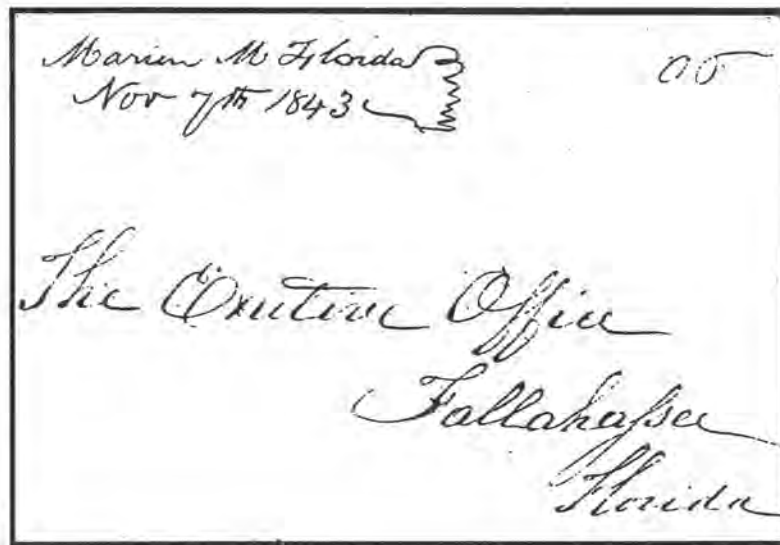 Marien M Florida
Nov 7th 1843
The Exutive Office
Tallahaſsee
Florida